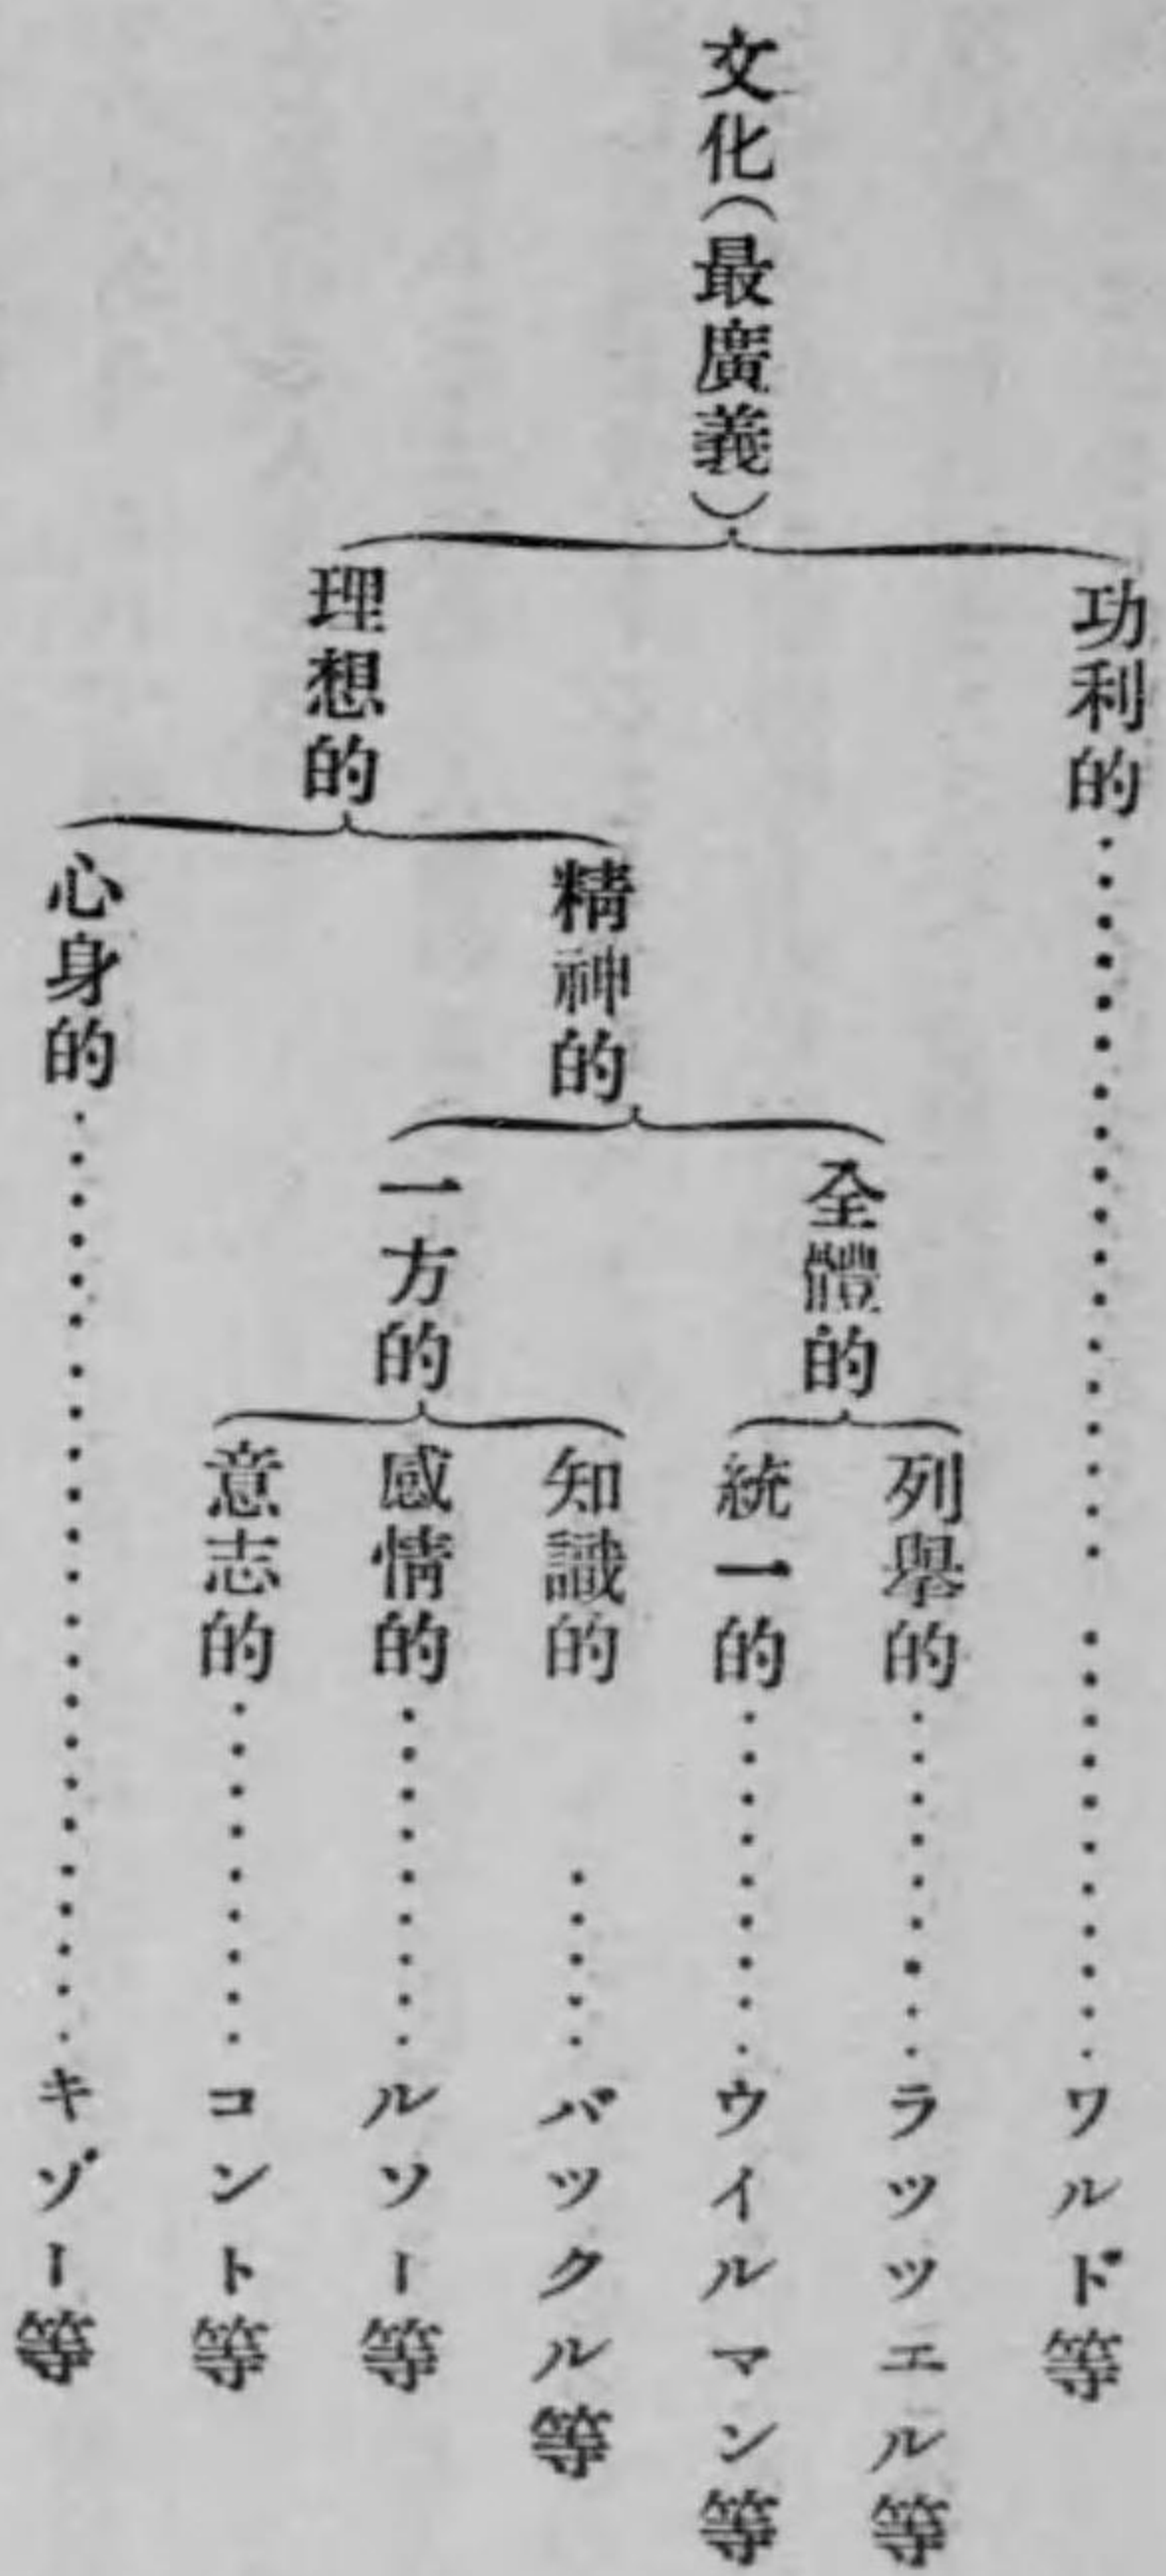 文化(最廣義)
功利的……………………………ワルド等
理想的
精神的
全體的
列擧的………ラッツエル等
統一的………ウイルマン等
一方的
知識的……バックル等
感情的………ルソー等
意志的………コント等
心身的………………………キゾー等